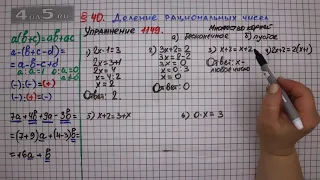 4АЛ5.ru
§ 40. Деление рациональных чисел
Упражнение 1149.
Множество корней
а) бесконечное б) пустое
a(b+c)=ab+ac
a-(b+c-d)=
=a-b-c+d
7a+4b+9a-3b=
=(7+9)a+(4-3)b=
=16a+b
1) 2x-1=3
2x=3+1
2x=4
x=2
Ответ: 2.
2) 3x+2=2
3x=2-2
3x=0
x=0
Ответ: 0
3) x+2=x+2
Ответ: x-
любое число
4) 2x+2=2(x+1)
5) x+2=3+x
6) 0·x=3